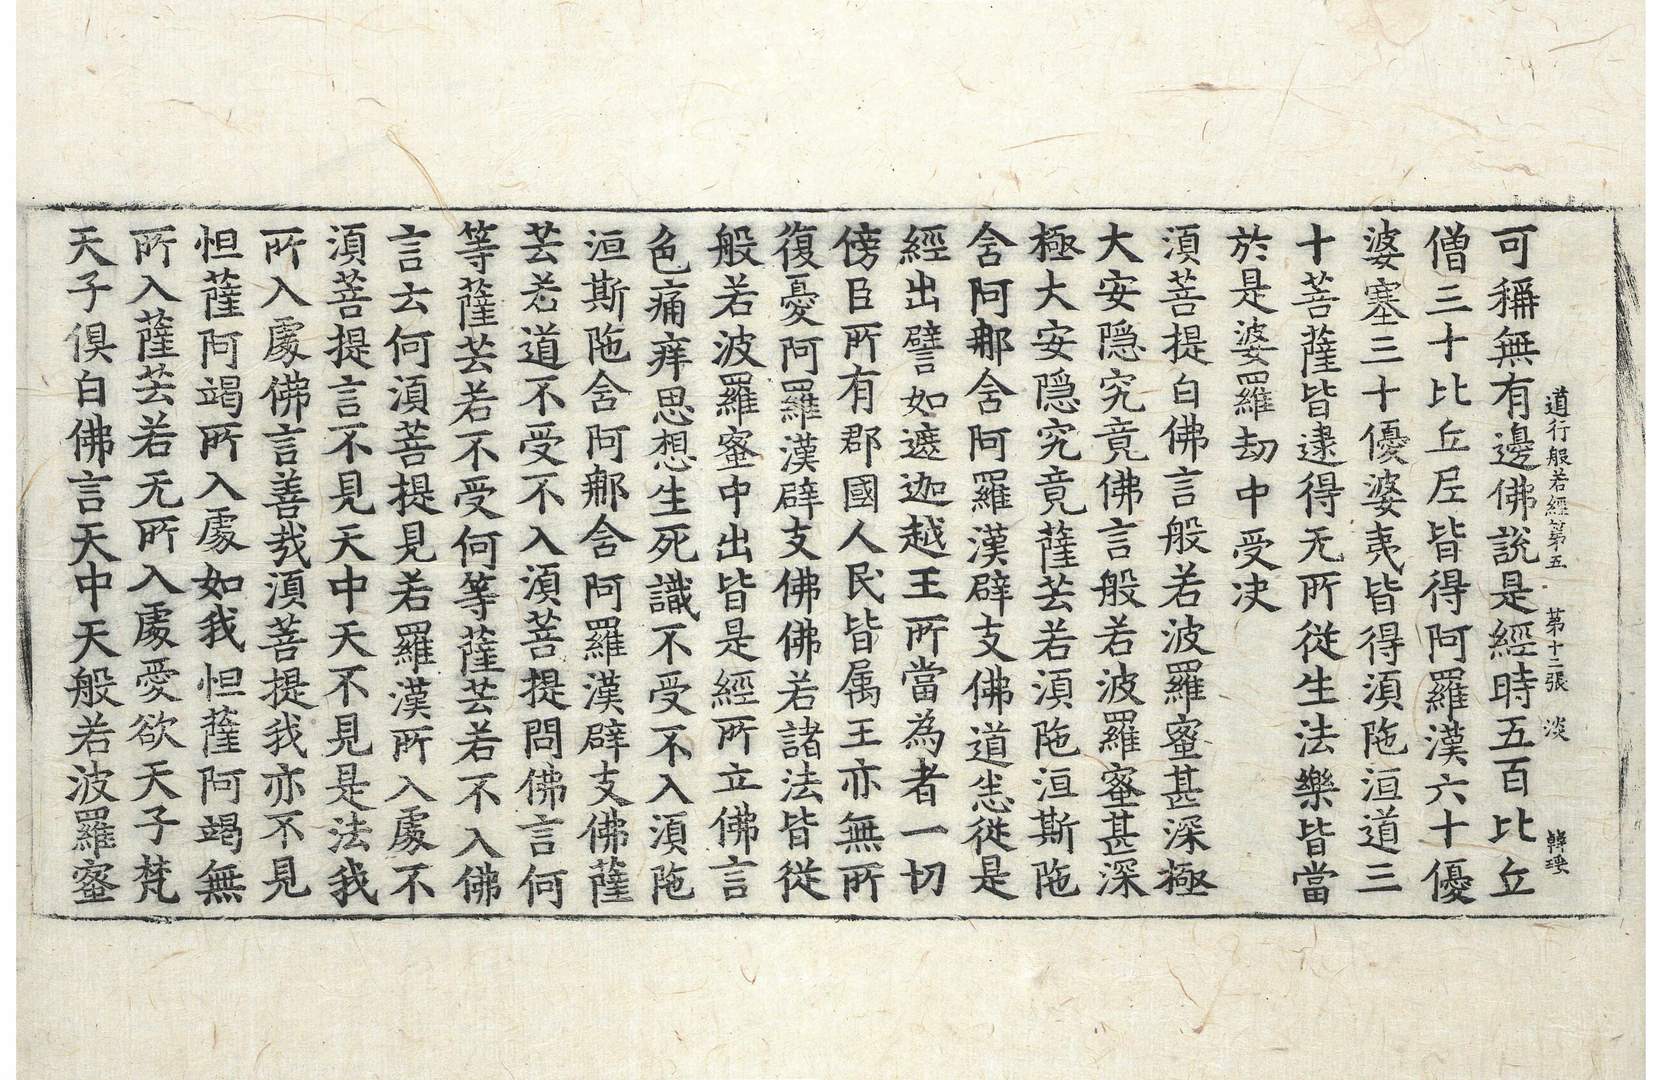 道行般若經第五 第十二張 淡
可稱無有邊佛說是經時五百比丘
僧三十比丘尼皆得阿羅漢六十優
婆塞三十優婆夷皆得須陁洹道三
十菩薩皆逮得无所從生法樂皆當
於是婆羅劫中受决
須菩提白佛言般若波羅蜜甚深極
大安隱究竟佛言般若波羅蜜甚深
極大安隱究竟薩芸若須陁洹斯陁
含阿那含阿羅漢辟支佛道悉從是
經出譬如遮迦越王所當為者一切
傍臣所有郡國人民皆属王亦無所
復憂阿羅漢辟支佛佛若諸法皆從
般若波羅蜜中出皆是經所立佛言
色痛痒思想生死識不受不入須陁
洹斯陁含阿那含阿羅漢辟支佛薩
芸若道不受不入須菩提問佛言何
等薩芸若不受何等薩芸若不入佛
言云何須菩提見若羅漢所入處不
須菩提言不見天中天不見是法我
所入處佛言善哉須菩提我亦不見
怛薩阿竭所入處如我怛薩阿竭無
所入薩芸若无所入處愛欲天子梵
天子俱白佛言天中天般若波羅蜜